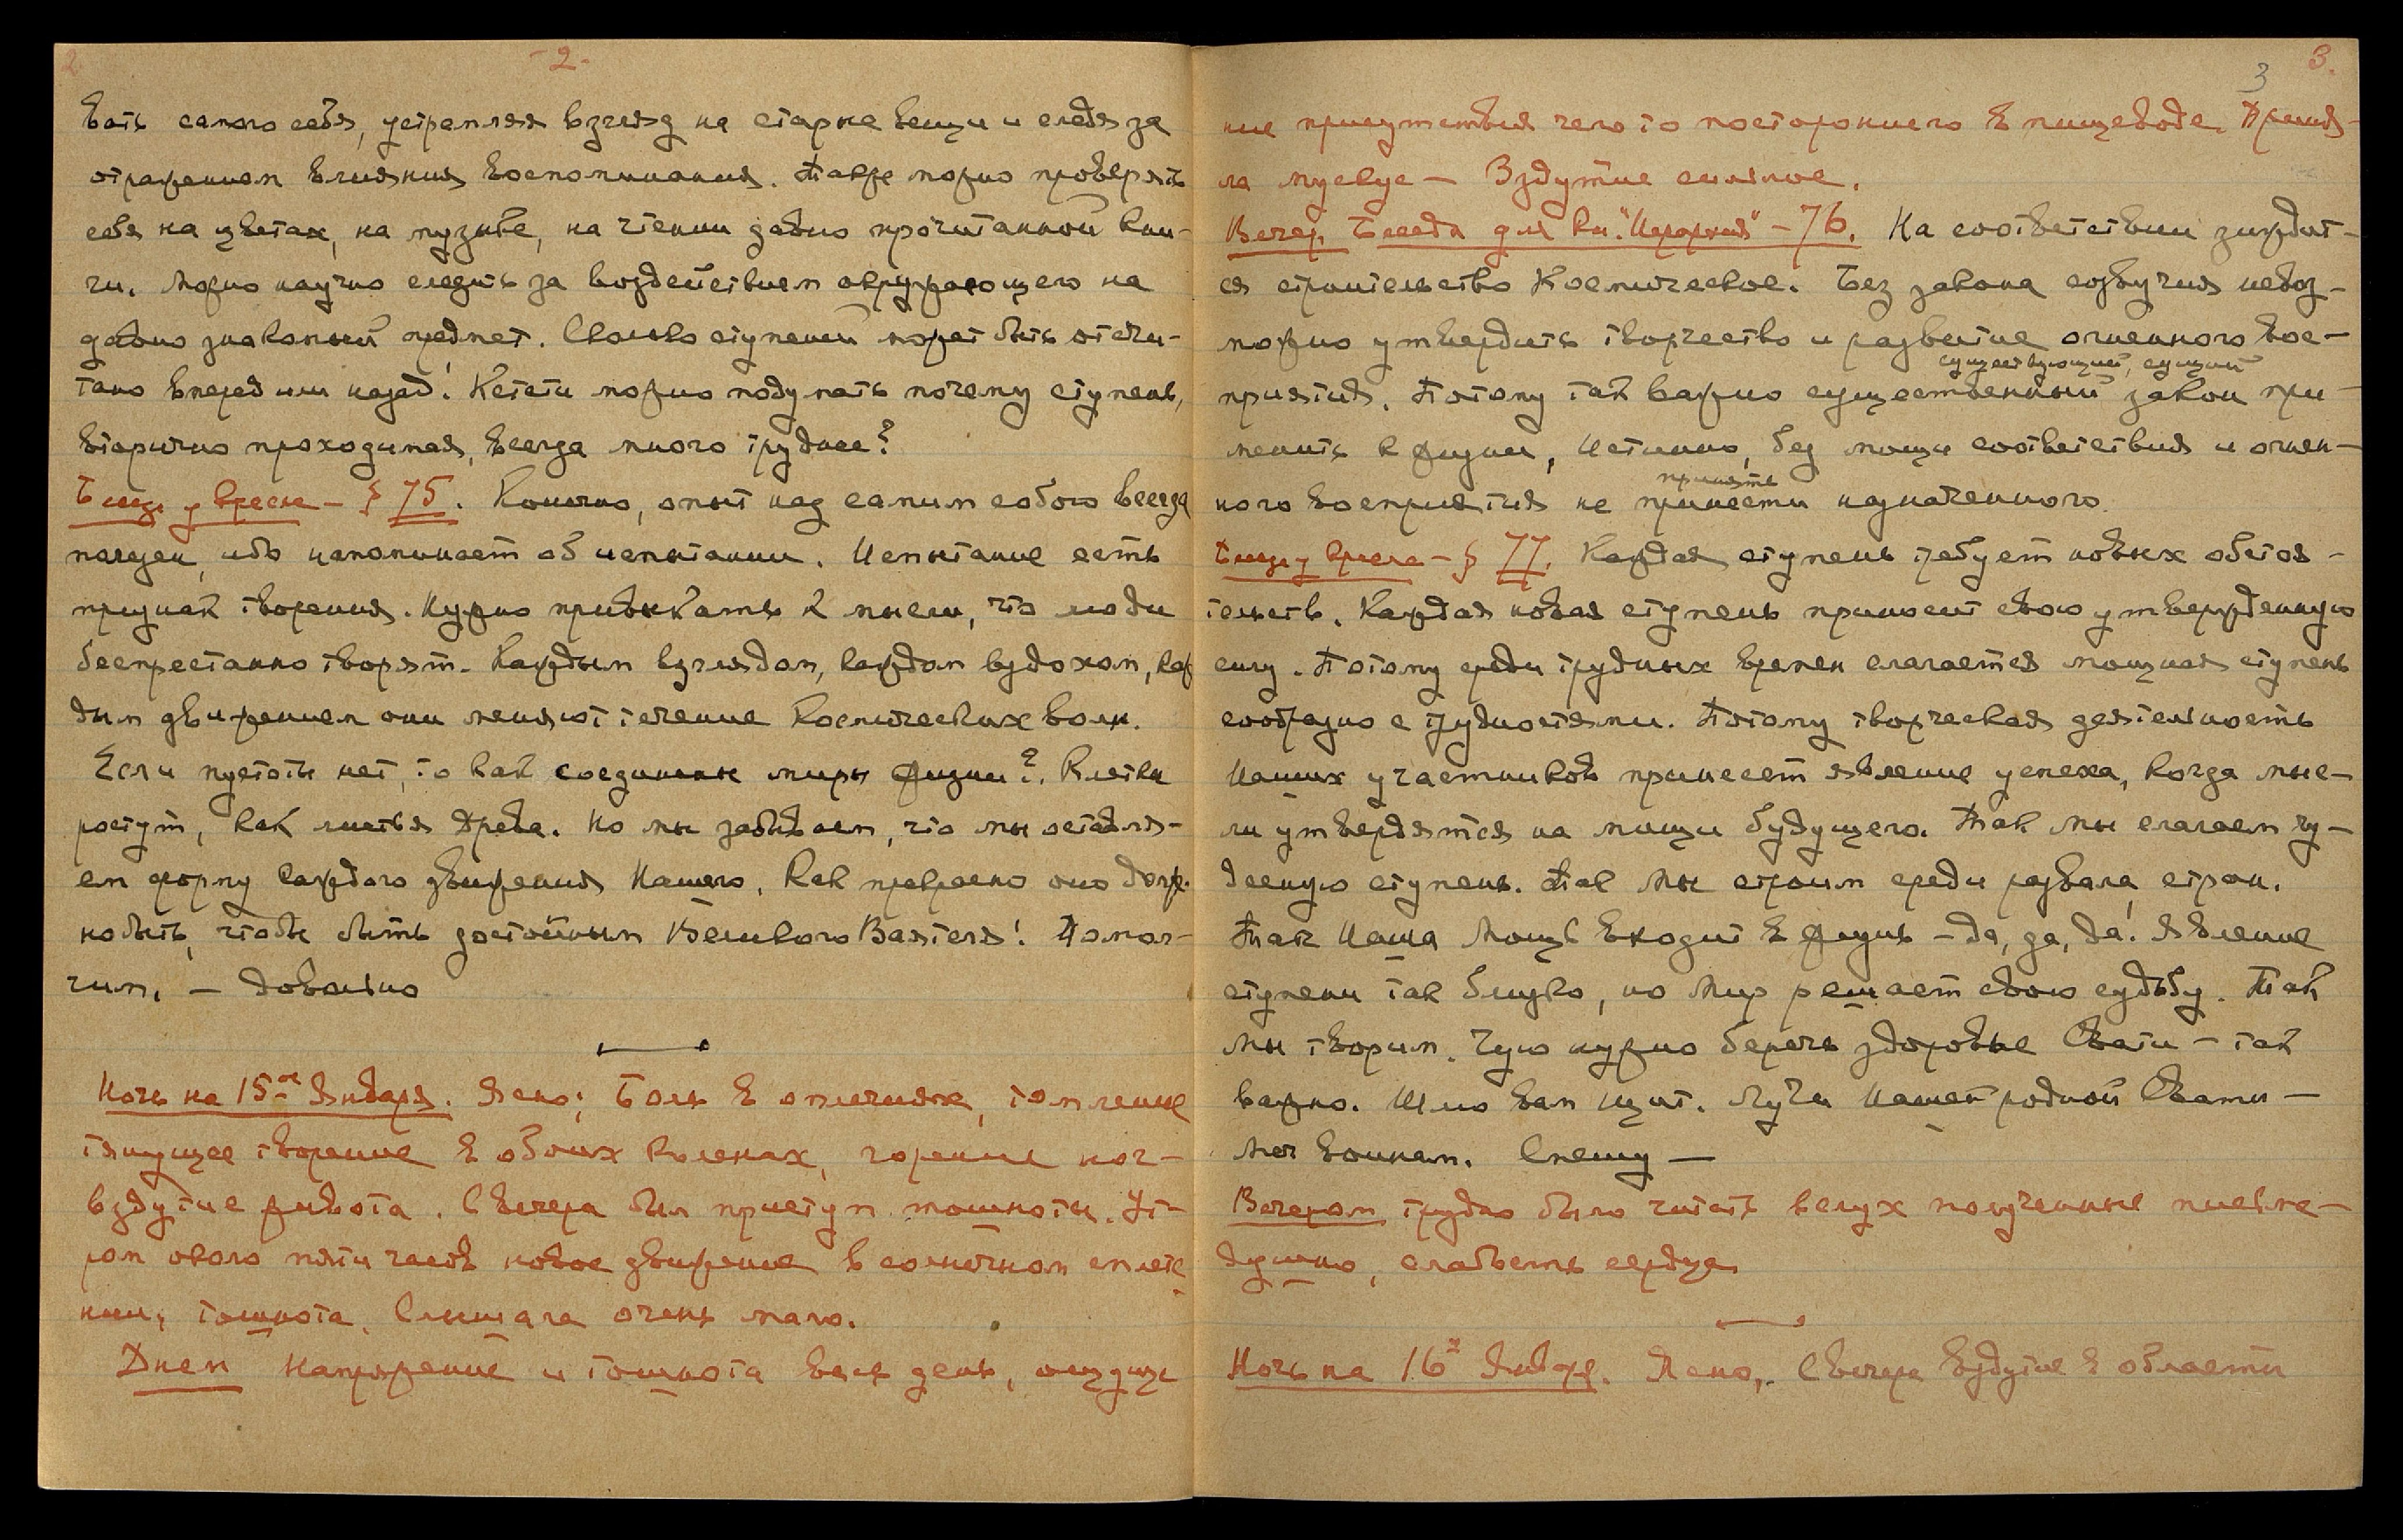 2
- 2 -
вать самого себя, устремляя взгляд на старые вещи и следя за
отражением влияния воспоминания. Также можно проверять
себя на цветах, на музыке, на чтении давно прочитанной кни-
ги. Можно научно следить за воздействием окружающего на
давно знакомый предмет. Сколько ступеней может быть отсчи-
тано вперед или назад! Кстати можно подумать почему ступень,
вторично проходимая, всегда много труднее?
§ 75. Конечно, опыт над самим собою всегда
полезен, ибо напоминает об испытании. Испытание есть
признак творения. Нужно привыкать к мысли, что люди
беспрестанно творят. Каждым взглядом, каждом вздохом, каж
дым движением они меняют течение космических волн.
Если пустоты нет, то как соединены миры жизни?. Клетки
ростут, как листья Древа. Но мы забываем, что мы оставля-
ем форму каждого движения Нашего. Как прекрасно оно долж.
но быть, чтобы быть достойным Великого Ваятеля! Помол-
чим. – Довольно
Ночь на 15-ое Января. Ясно; Боль в оплечиях, томление
тянущее творение в обоих коленах, горение ног-
вздутие живота. С вечера был приступ тошноты. Ут-
ром около пяти часов новое движение в солнечном сплете
нии, тошнота. Слышала очень мало.
Днем Напряжение и тошнота весь день, ощуще
3
3.
ние присутствия чего то постороннего в пищеводе.
ла мускус – Вздутие сильное.
Вечер. Беседа для кн. "Иерархия" – 76. На соответствии зиждит-
ся строительство Космическое. Без закона созвучия невоз-
можно утвердить творчество и развитие огненного вос-
существующий, сущий
приятия. Потому так важно существенный закон при-
менить к жизни, Истинно, без мощи соответствия и огнен-
принять
ного восприятия не принести назначенного.
§ 77. Каждая ступень требует новых обстоя-
тельств. Каждая новая ступень приносит свою утвержденную
силу. Потому среди трудных времен слагается мощная ступень
сообразно с трудностями. Потому творческая деятельность
Наших участников принесет явление успеха, когда мыс-
ли утвердятся на мощи будущего. Так мы слагаем чу-
десную ступень. Так Мы строим среди развала стран.
Так Наша Мощь входит в жизнь – да, да, да! Явление
ступени так близко, но Мир решает свою судьбу. Так
Мы творим. Чую нужно беречь здоровье Свати – так
важно. Шлю вам щит. Лучи Нашей родной Свати –
Меч воинам. Спешу –
Вечером трудно было читать вслух полученные письма-
душно, слабость сердца
Ночь на 16ое Января. Ясно, С вечера вздутие в области